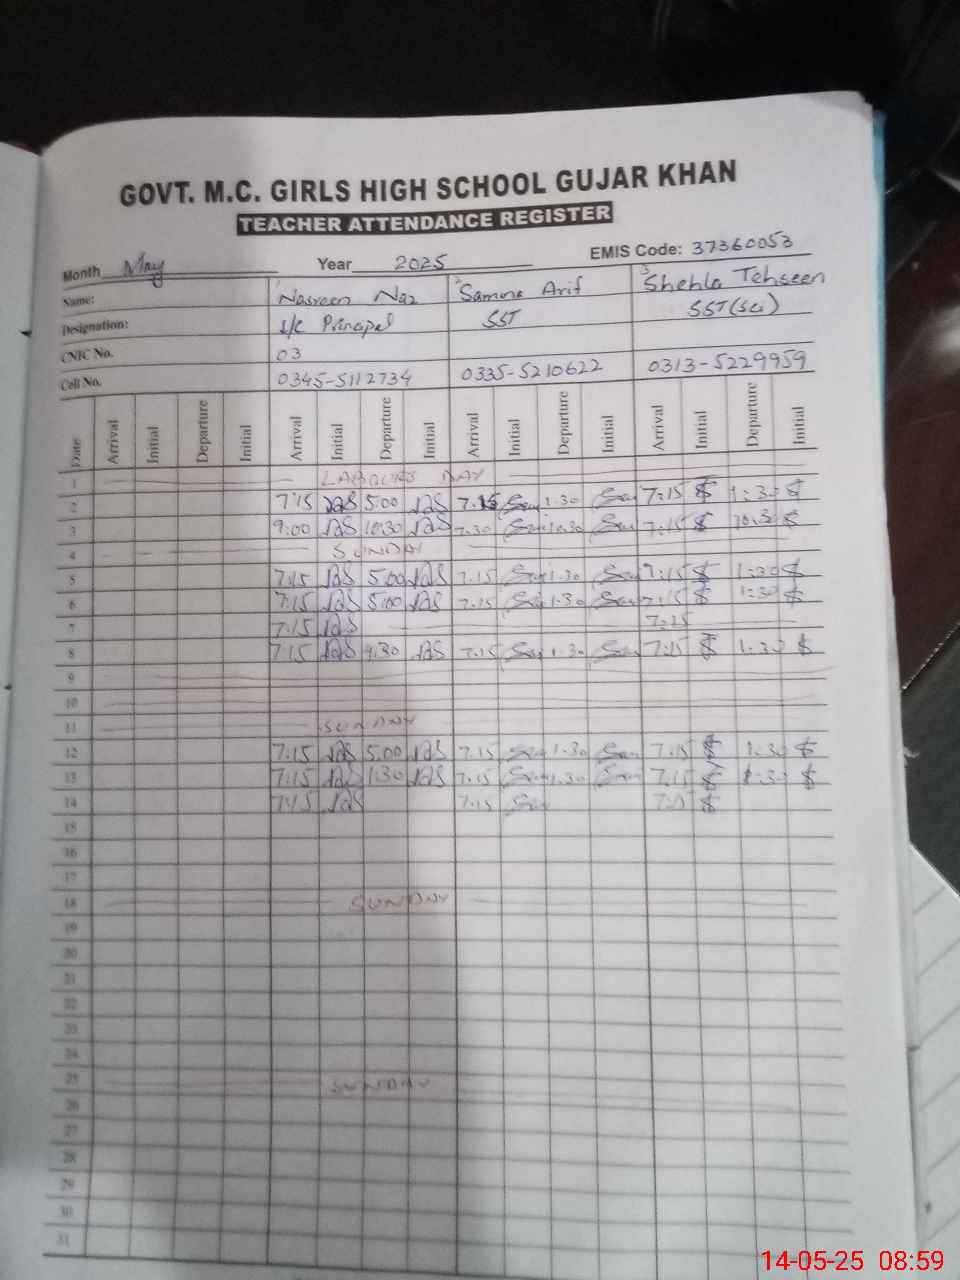 GOVT. M.C. GIRLS HIGH SCHOOL GUJAR KHAN
TEACHER ATTENDANCE REGISTER
Month May Year 2025 EMIS Code: 37360053
Name: 1 Nasreen Naz 2 Samina Arif 3 Shehla Tehseen
Designation: I/C Principal SST SST(Sci)
CNIC No. 03
Cell No. 0345-5112734 0335-5210622 0313-5229959
Date Arrival Initial Departure Initial Arrival Initial Departure Initial Arrival Initial Departure Initial Arrival Initial Departure Initial
1 LABOURS DAY
2 7:15 5:00 7.15 1.30 7:15 1:30
3 9:00 10:30 7.30 10.30 7:15 10.30
4 SUNDAY
5 7:15 5:00 7.15 1.30 7:15 1:30
6 7:15 5:00 7.15 1.30 7:15 1:30
7 7:15 7:15
8 7:15 4.30 7.15 1.30 7:15 1:30
9
10
11 SUNDAY
12 7:15 5:00 7.15 1.30 7:15 1:30
13 7:15 1:30 7.15 1.30 7:15 1:30
14 7:15 7.15 7:15
15
16
17
18 SUNDAY
19
20
21
22
23
24
25 SUNDAY
26
27
28
29
30
31
14-05-25 08:59